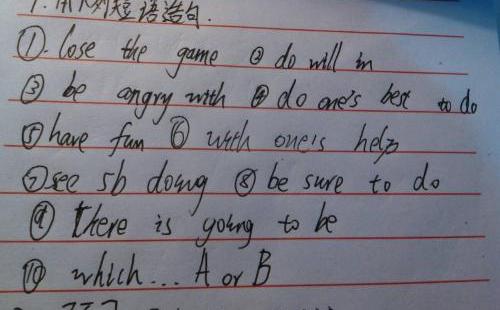 1. 用下列短语造句.
①. lose the game ② do will in
③ be angry with ④ do one's best to do
⑤ have fun ⑥ with one's help
⑦ see sb doing ⑧ be sure to do
⑨ there is going to be
⑩ which... A or B